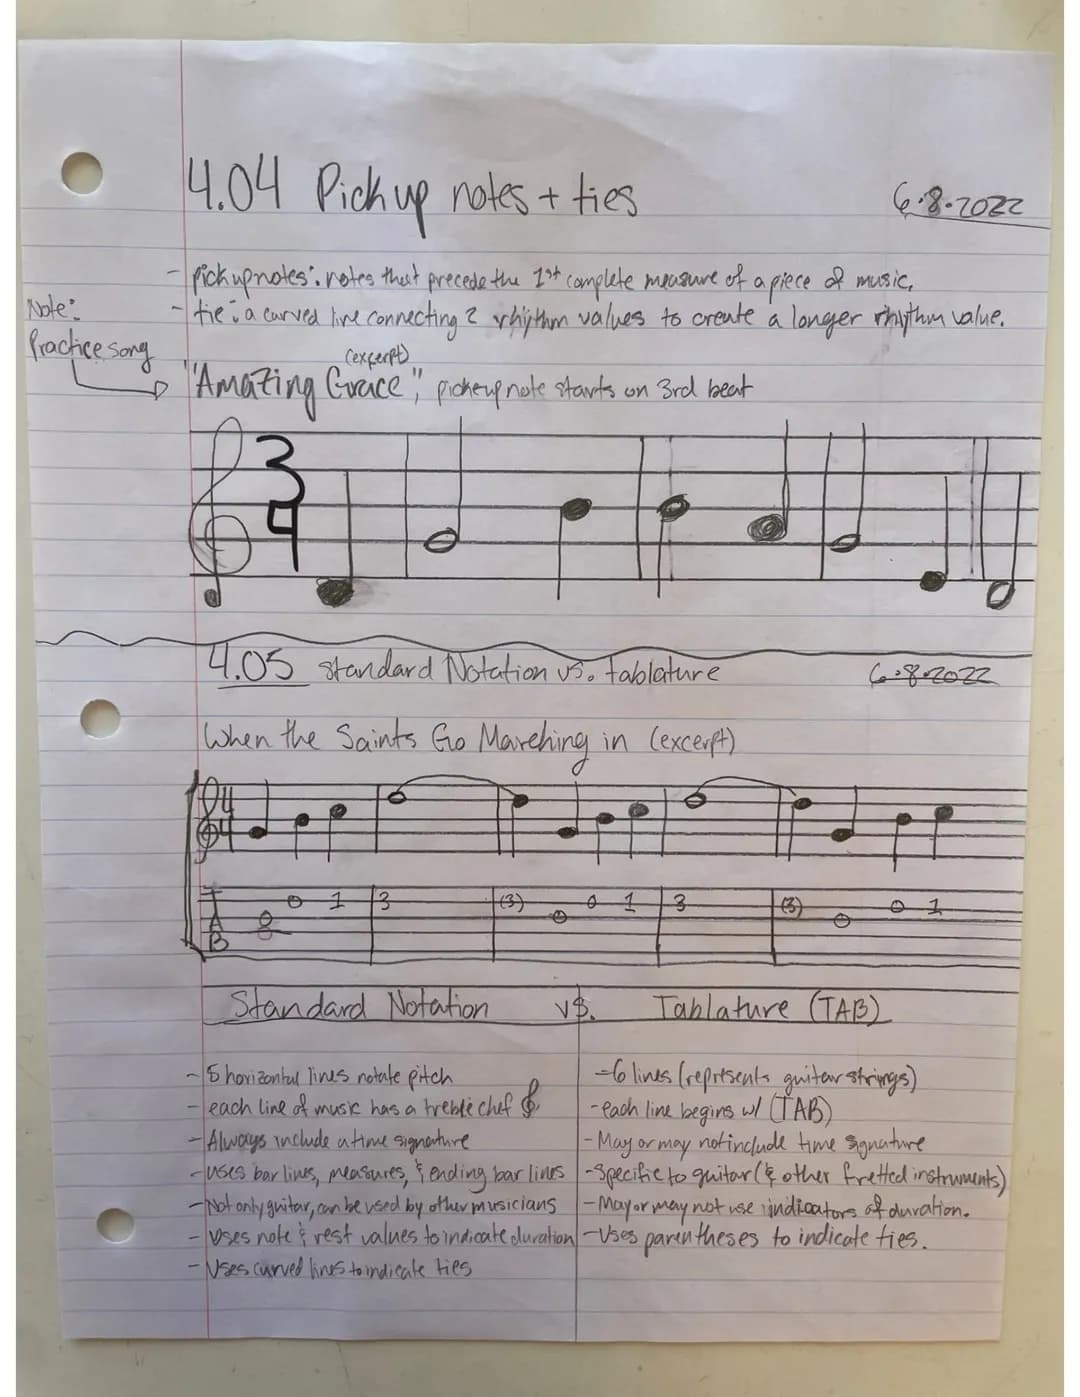 4.04 Pickup notes + ties 6.8.2022
- pickup notes: notes that precede the 1st complete measure of a piece of music.
Note: - tie: a curved line connecting 2 rhythm values to create a longer rhythm value.
Practice song
(excerpt)
"Amazing Grace", pickup note starts on 3rd beat
3
4
4.05 Standard Notation vs. tablature 6.8.2022
When the Saints Go Marching in (excerpt)
4
4
T 0 1 3 (3) 0 0 1 3 (3) 0 0 1
A 0
B
Standard Notation vs. Tablature (TAB)
- 5 horizontal lines notate pitch
- each line of music has a treble chef
- Always include a time signature
- uses bar lines, measures, & ending bar lines
- Not only guitar, can be used by other musicians
- Uses note & rest values to indicate duration
- Uses curved lines to indicate ties
- 6 lines (represents guitar strings)
- each line begins w/ (TAB)
- May or may not include time signature
- Specific to guitar (& other fretted instruments)
- May or may not use indicators of duration.
- Uses parentheses to indicate ties.